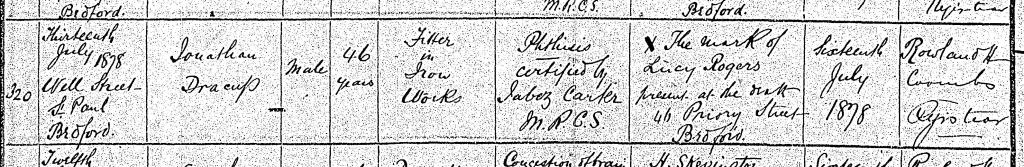 Bedford.
M.R.C.S.
Bedford.
Registrar
320
Thirteenth
July 1878
Well Street
St. Paul
Bedford.
Jonathan
Dracuſs
Male
46
years
Fitter
in
Iron
Works
Phthisis
certified by
Jabez Carter
M.R.C.S.
X The mark of
Lucy Rogers
present at the death
46 Priory Street
Bedford.
Sixteenth
July
1878
Rowland H
Coombs
Registrar
Twelfth
Concestion of brain
H. Skevington